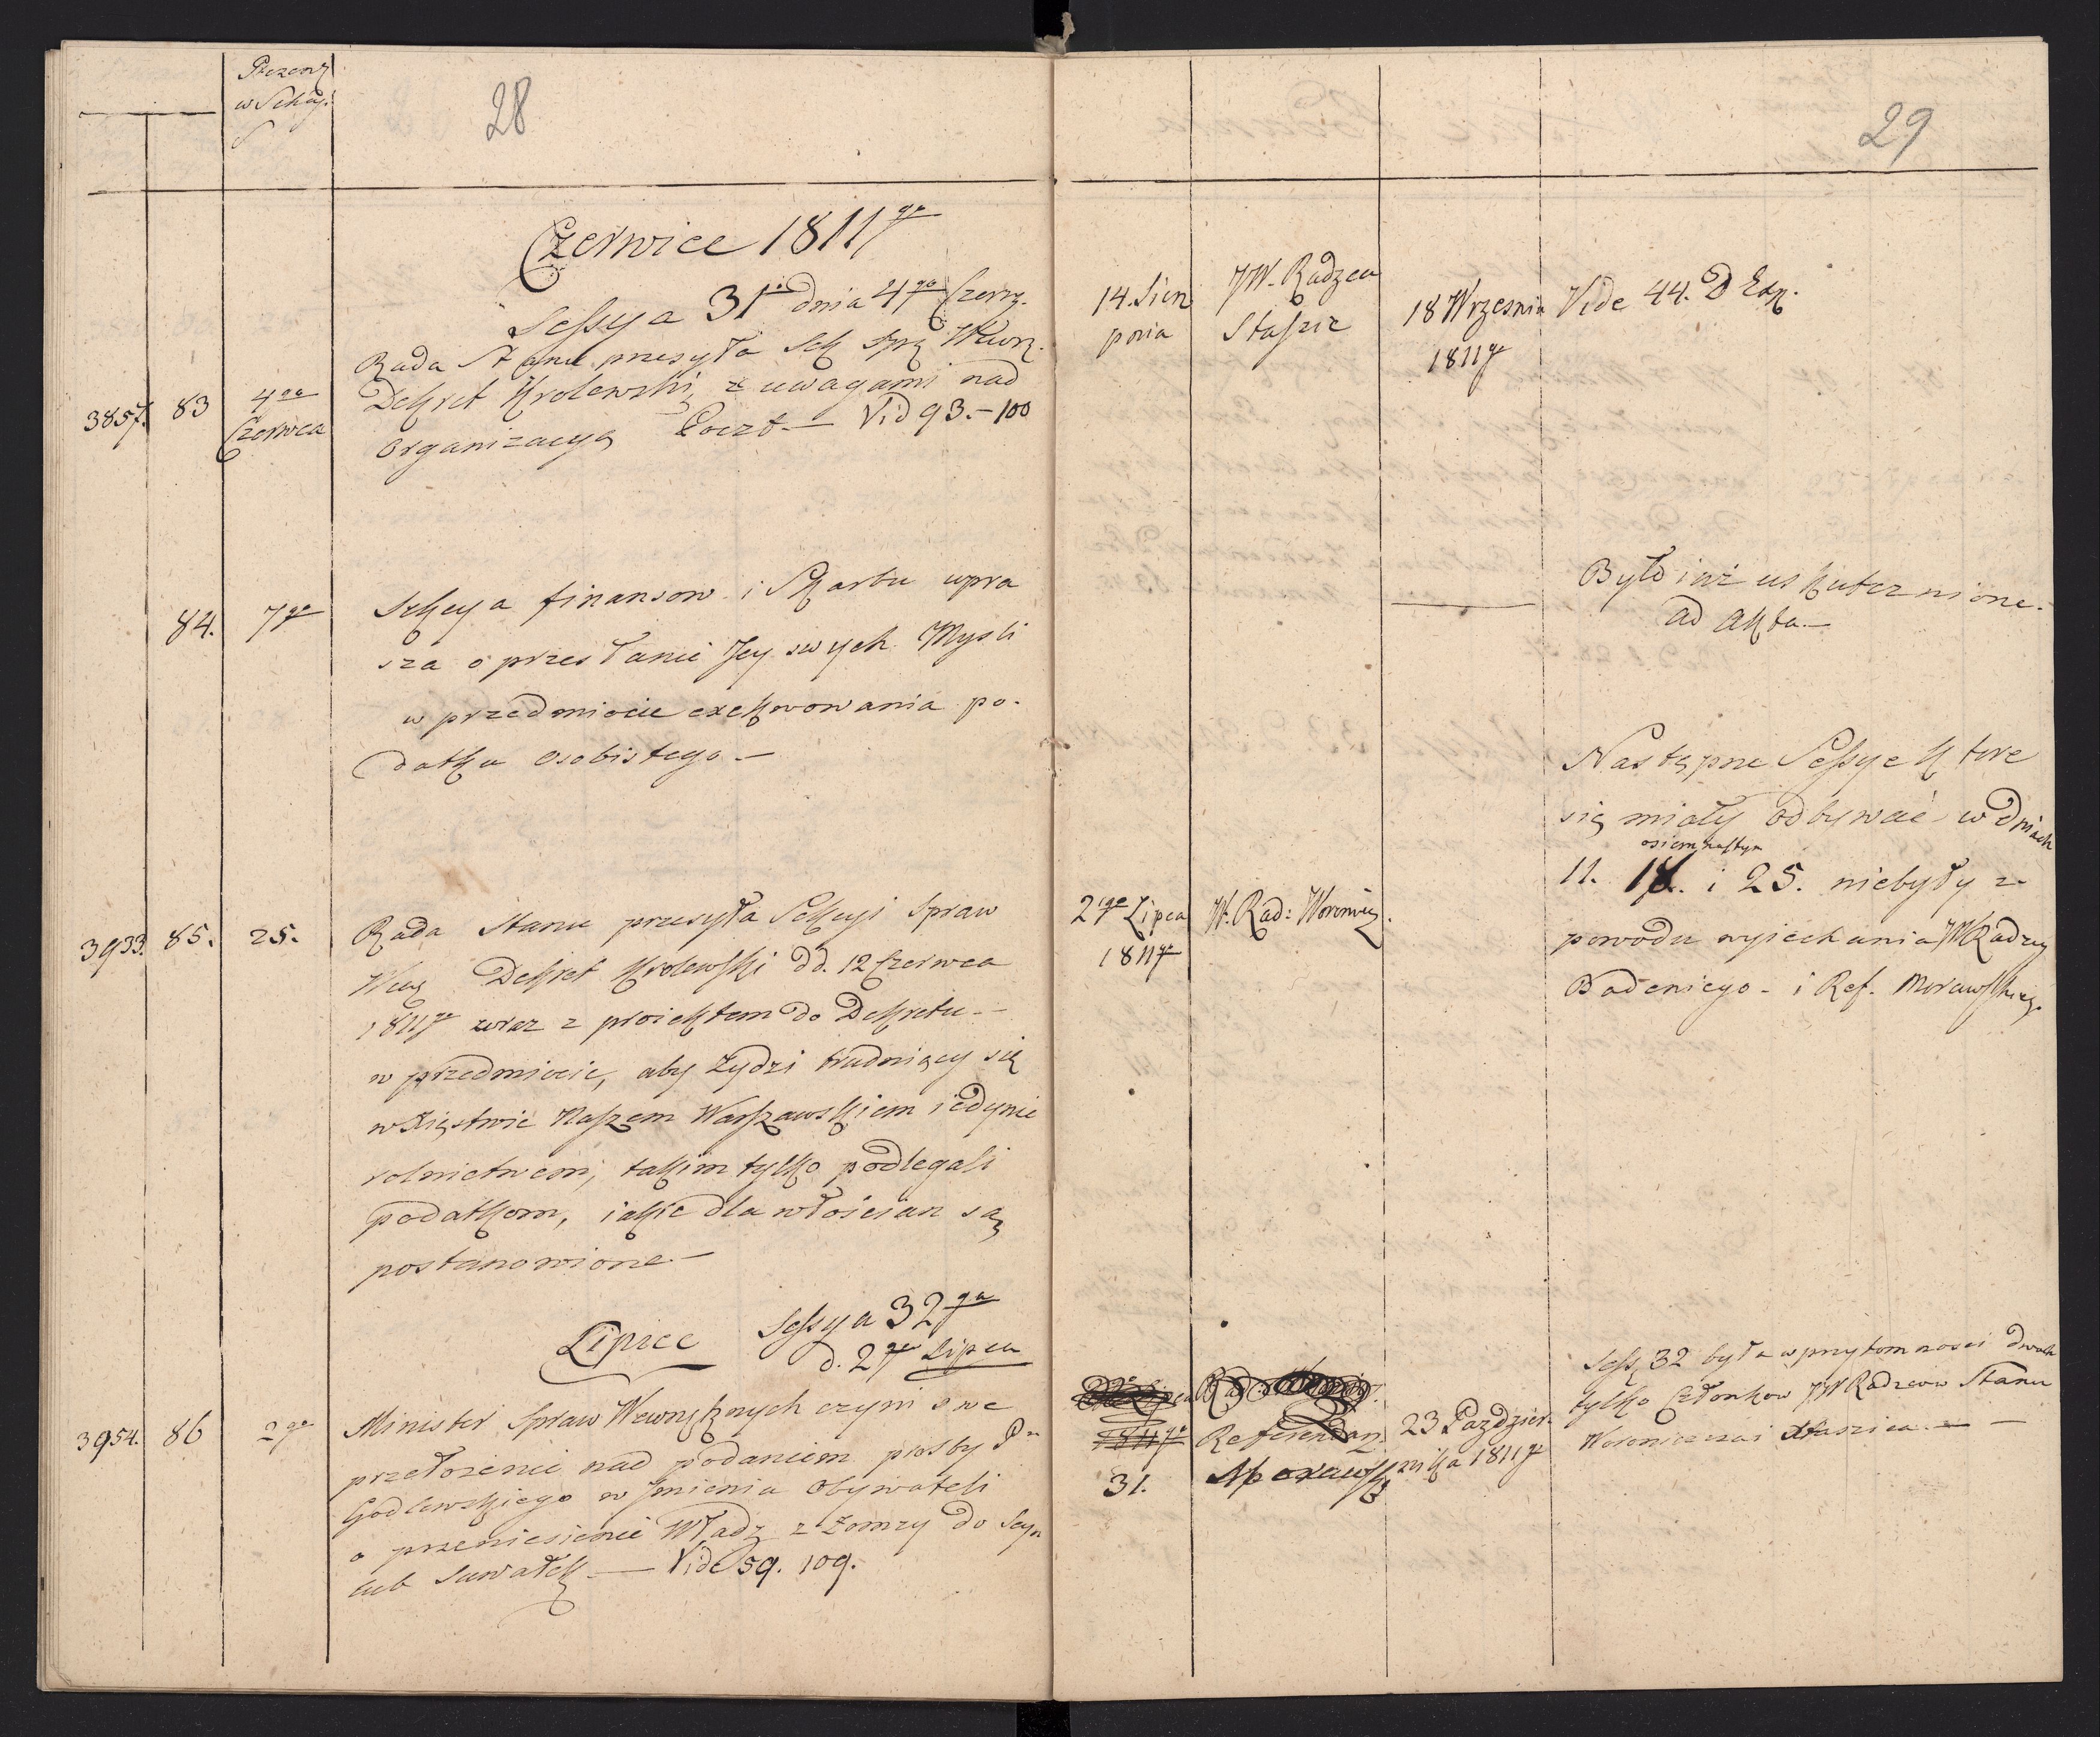 Prezent
w Sekcyi
28
Czerwiec 1811go
Sessya 31a dnia 4go Czerw.
3857. 83 4go Czerwca
Rada Stanu przesyła Sek Spr Wewn.
Dekret Krolewski z uwagami nad
organizacyą Poczt— Vid 93.—100
84. 7go
Sekcya finansow i Skarbu upra
sza o przesłanie Jey swych Mysli
w przedmiocie exekwowania po-
datku osobistego.—
3933. 85. 25.
Rada Stanu przesyła Sekcyi Spraw
Wew Dekret Krolewski dd. 12 Czerwca
1811go wraz z proiektem do Dekretu—
w przedmiocie, aby Żydzi trudniący się
w Xięstwie Naszem Warszawskiem iedynie
rolnictwem, takim tylko podlegali
podatkom, iakie dla włościan są
postanowione.—
Lipiec Sessya 32ga
d. 2go Lipca
3954. 86 2go
Minister Spraw Wewnętrznych czyni swe
przełożenie nad podaniem prosby Pa
Godlewskiego w Jmieniu Obywateli
o przeniesienie Władz z Łomzy do Seyn
lub Suwałek.— Vide 59. 109.
29
14. Sier
pnia
JW. Radzca
Staszic
18 Wrzesnia
1811go
Vide 44. D Exp.
Było iuż uskutecznione.
ad akta.—
Następne Sessye ktore
się miały odbywać w Dniach
osiemnastym
11. 18. i 25. niebyły z
powodu wyiechania JW Radzcy
Badeniego - i Ref. Morawskieg.
2go Lipca
1811go
W. Rad: Woronicz.
1811go
31.
Referendarz
Morawski
23 Pazdzier-
nika 1811go
Sess 32 była w przytomnosci dwoch
tylko Członkow JW Radzcow Stanu
Woronicza i Staszica.—